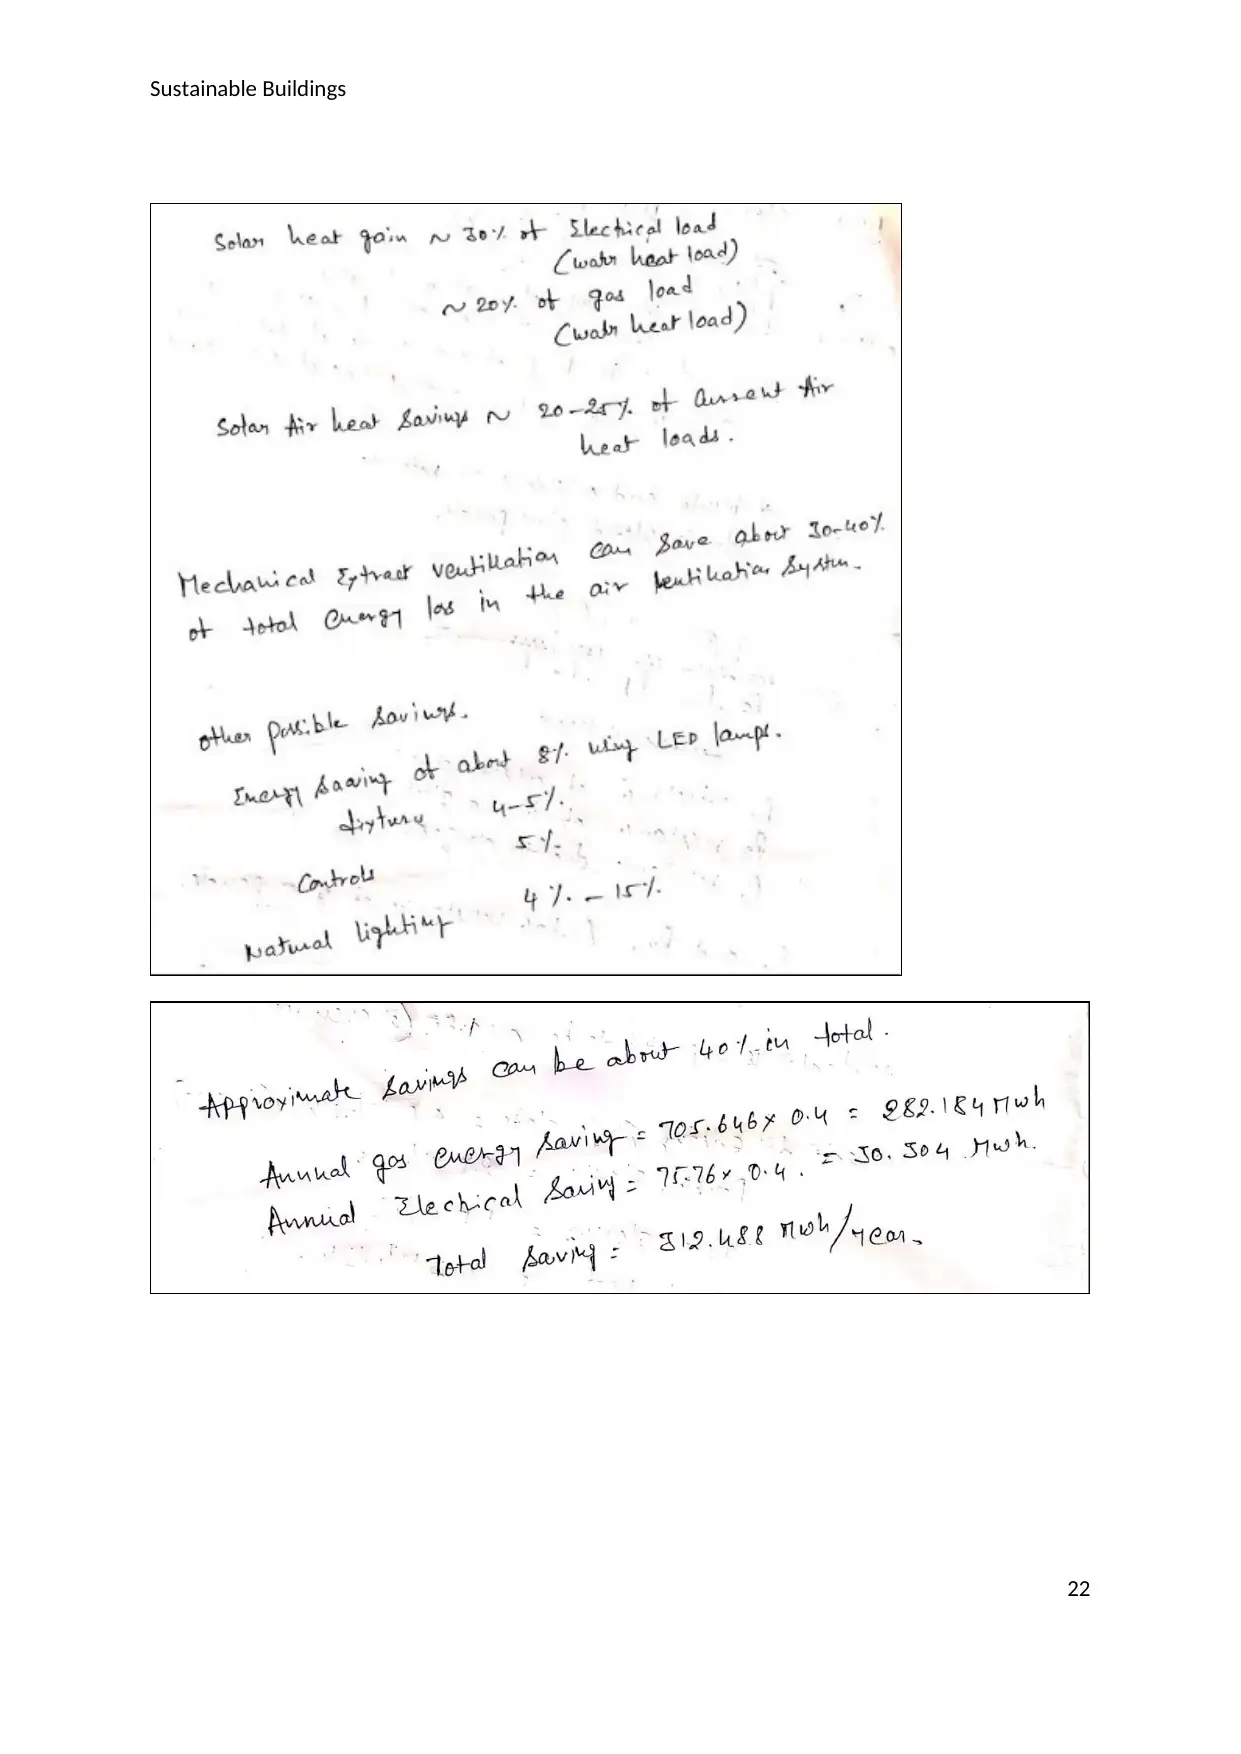 Sustainable Buildings
Solar heat gain ~ 30% of Electrical load
(water heat load)
~ 20% of gas load
(water heat load)
Solar Air heat savings ~ 20-25% of current Air
heat loads.
Mechanical Extract ventillation can save about 30-40%
of total energy loss in the air ventillation system.
other possible savings.
Energy saaving of about 8% using LED lamps.
fixture 4-5%.
Controls 5%.
Natural lighting 4%. - 15%.
Approximate savings can be about 40% in total.
Annual gas energy saving = 705.646 x 0.4 = 282.184 Mwh
Annual Electrical Saving = 75.76 x 0.4. = 30.304 Mwh.
Total saving = 312.488 Mwh/year.
22